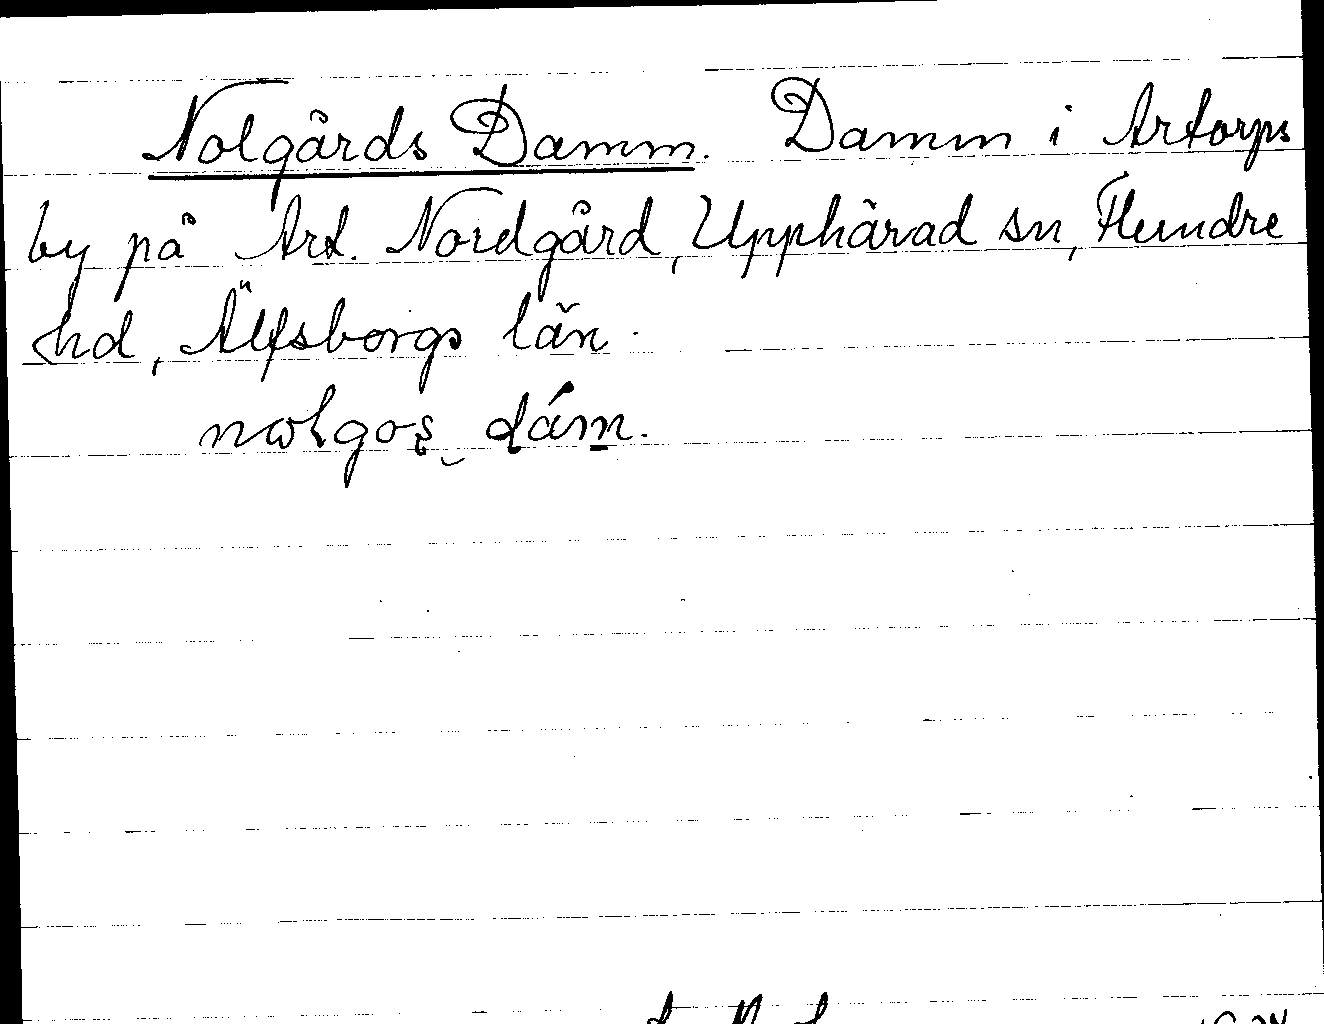 Nolgårds Damm. Damm i Artorps
by på Art. Nordgård, Upphärad sn, Flundre
hd, Älfsborgs län.
dám.